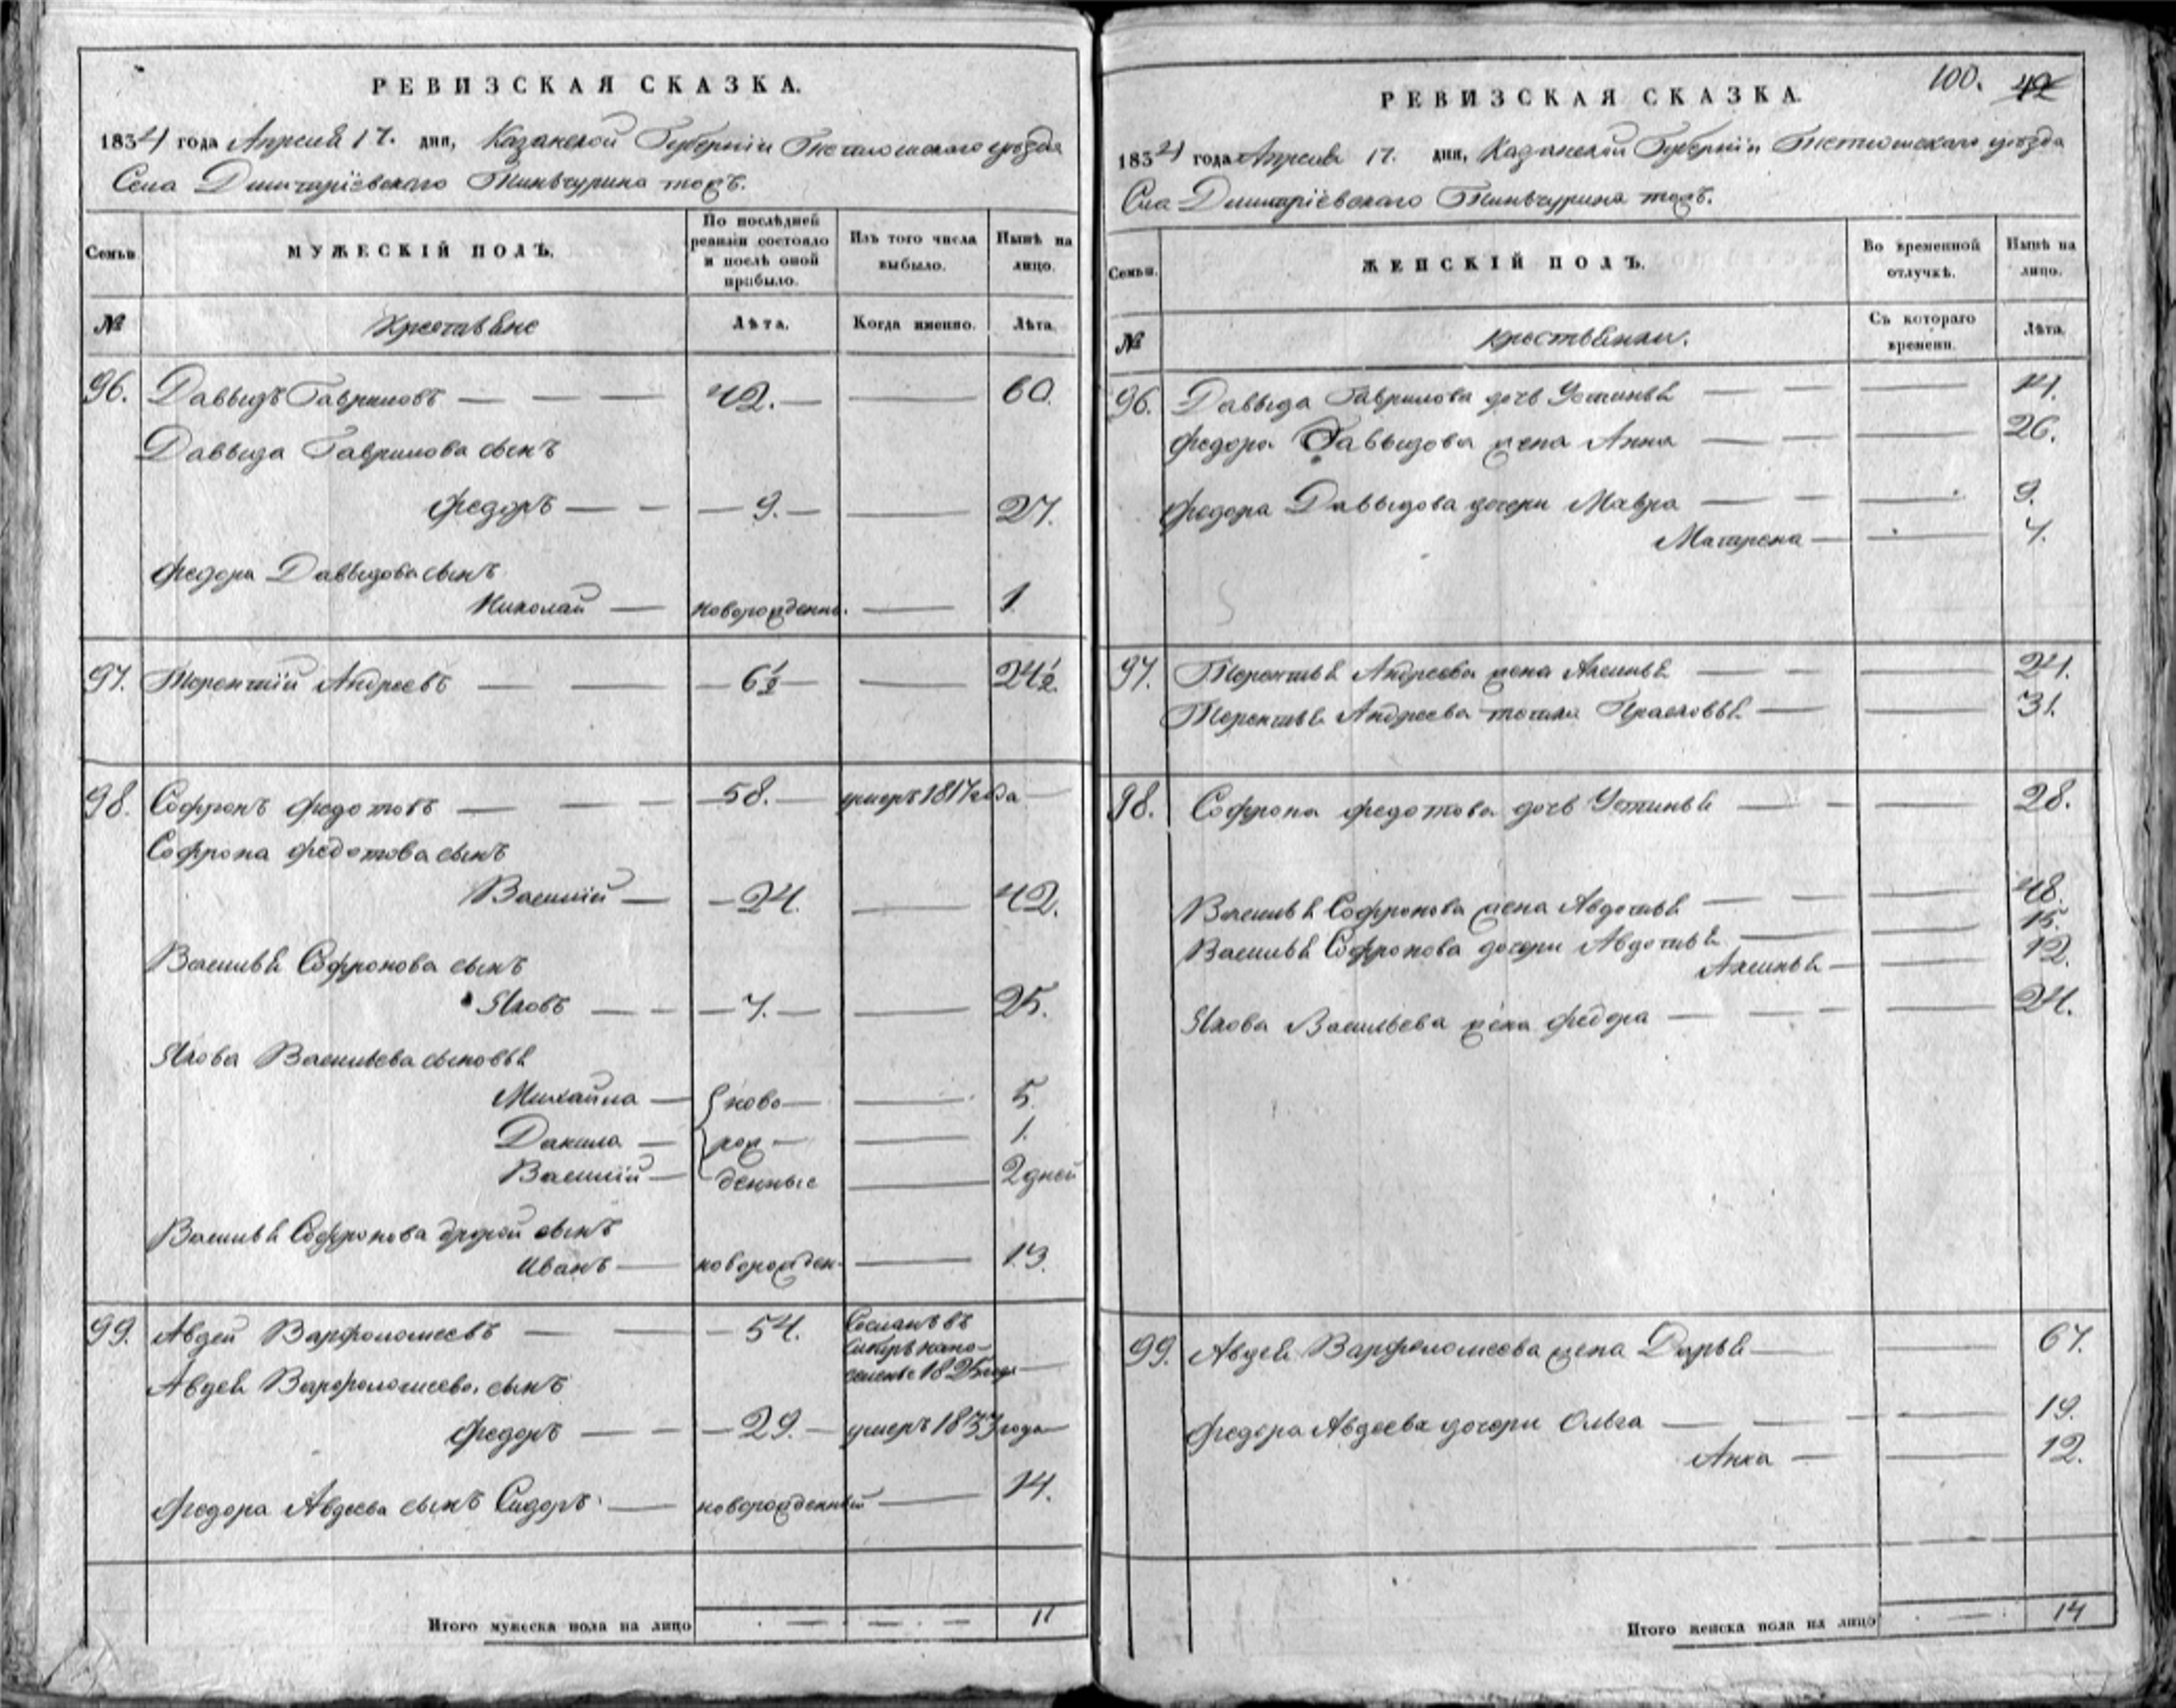 РЕВИЗСКАЯ СКАЗКА.
1834 года Апреля 17. дня, Казанской Губернiи Тетюшскаго уѣзда
Села Димитрiевскаго Тинчурина тожъ.
Семьи
МУЖЕСКIЙ ПОЛЪ.
По послѣдней ревизiи состояло и послѣ оной прибыло.
Изъ того числа выбыло.
Нынѣ на лицо.
№
Крестьяне
Лѣта.
Когда именно.
Лѣта.
96. Давыдъ Гавриловъ — — — 42. — — 60.
Давыда Гаврилова сынъ
Федоръ — — — 9. — — 27.
Федора Давыдова сынъ
Николай — новорожденн. — 1
97. Терентий Андреевъ — — — 6½ — — 24½.
98. Софронъ Федотовъ — — — 58. умеръ 1817 года —
Софрона Федотова сынъ
Василий — — 24. — 42.
Василья Софронова сынъ
Яковъ — — — 7. — — 25.
Якова Васильева сыновья
Михайла — { ново — — 5.
Данила — рож — — 1.
Василий — денные — 2 дней
Василья Софронова другой сынъ
Иванъ — новорожден. — 13.
99. Авдей Варфоломеевъ — — — 54. Сосланъ въ
Сибирь на по-
селенье 1825 года —
Авдея Варфоломеева сынъ
Федоръ — — — 29. — умеръ 1833 года —
Федора Авдеева сынъ Сидоръ — новорожденный — 14.
Итого мужеска пола на лицо — — — 11
100. 42
РЕВИЗСКАЯ СКАЗКА.
1834 года Апреля 17. дня, Казанской Губернiи Тетюшскаго уѣзда
Села Димитрiевскаго Тинчурина тожъ.
Семьи.
ЖЕНСКIЙ ПОЛЪ.
Во временной отлучкѣ.
Нынѣ на лицо.
№
крестьянки.
Съ котораго времени.
Лѣта.
96. Давыда Гаврилова дочь Устинья — — — 14.
Федора Давыдова жена Анна — — — 26.
Федора Давыдова дочери Мавра — — — 9.
Матрена — — 7.
97. Терентья Андреева жена Аксинья — — — 24.
Терентья Андреева Прасковья — — 31.
98. Софрона Федотова дочь Устинья — — — 28.
Василья Софронова жена Авдотья — — — 48.
Василья Софронова дочери Авдотья — — 15.
Аксинья — — 12.
Якова Васильева жена Федора — — — 24.
99. Авдея Варфоломеева жена Дарья — — 67.
Федора Авдеева дочери Ольга — — — 19.
Анна — — 12.
Итого женска пола на лицо — 14